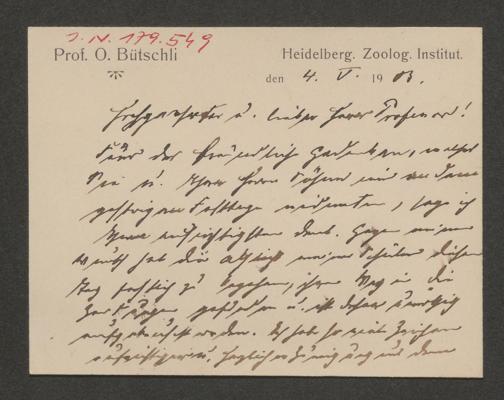 J. N. 179.549
Prof. O. Bütschli
Heidelberg. Zoolog. Institut.
den 4. V. 1903.
Hochgeehrter u. lieber Herr Professor!
Für das freundliche Gedenken, welches
Sie u. Ihre Herrn Söhne mir an dem
gestrigen Festtage widmeten, sage ich
Ihnen aufrichtigsten Dank. Gegen meinen
Wunsch hat die Absicht meiner Schüler diesen
Tag festlich zu begehen, ihren Weg in die
Zeitungen gefunden u. ist daher
worden. Ich habe so viel Zeichen
aufrichtiger u.